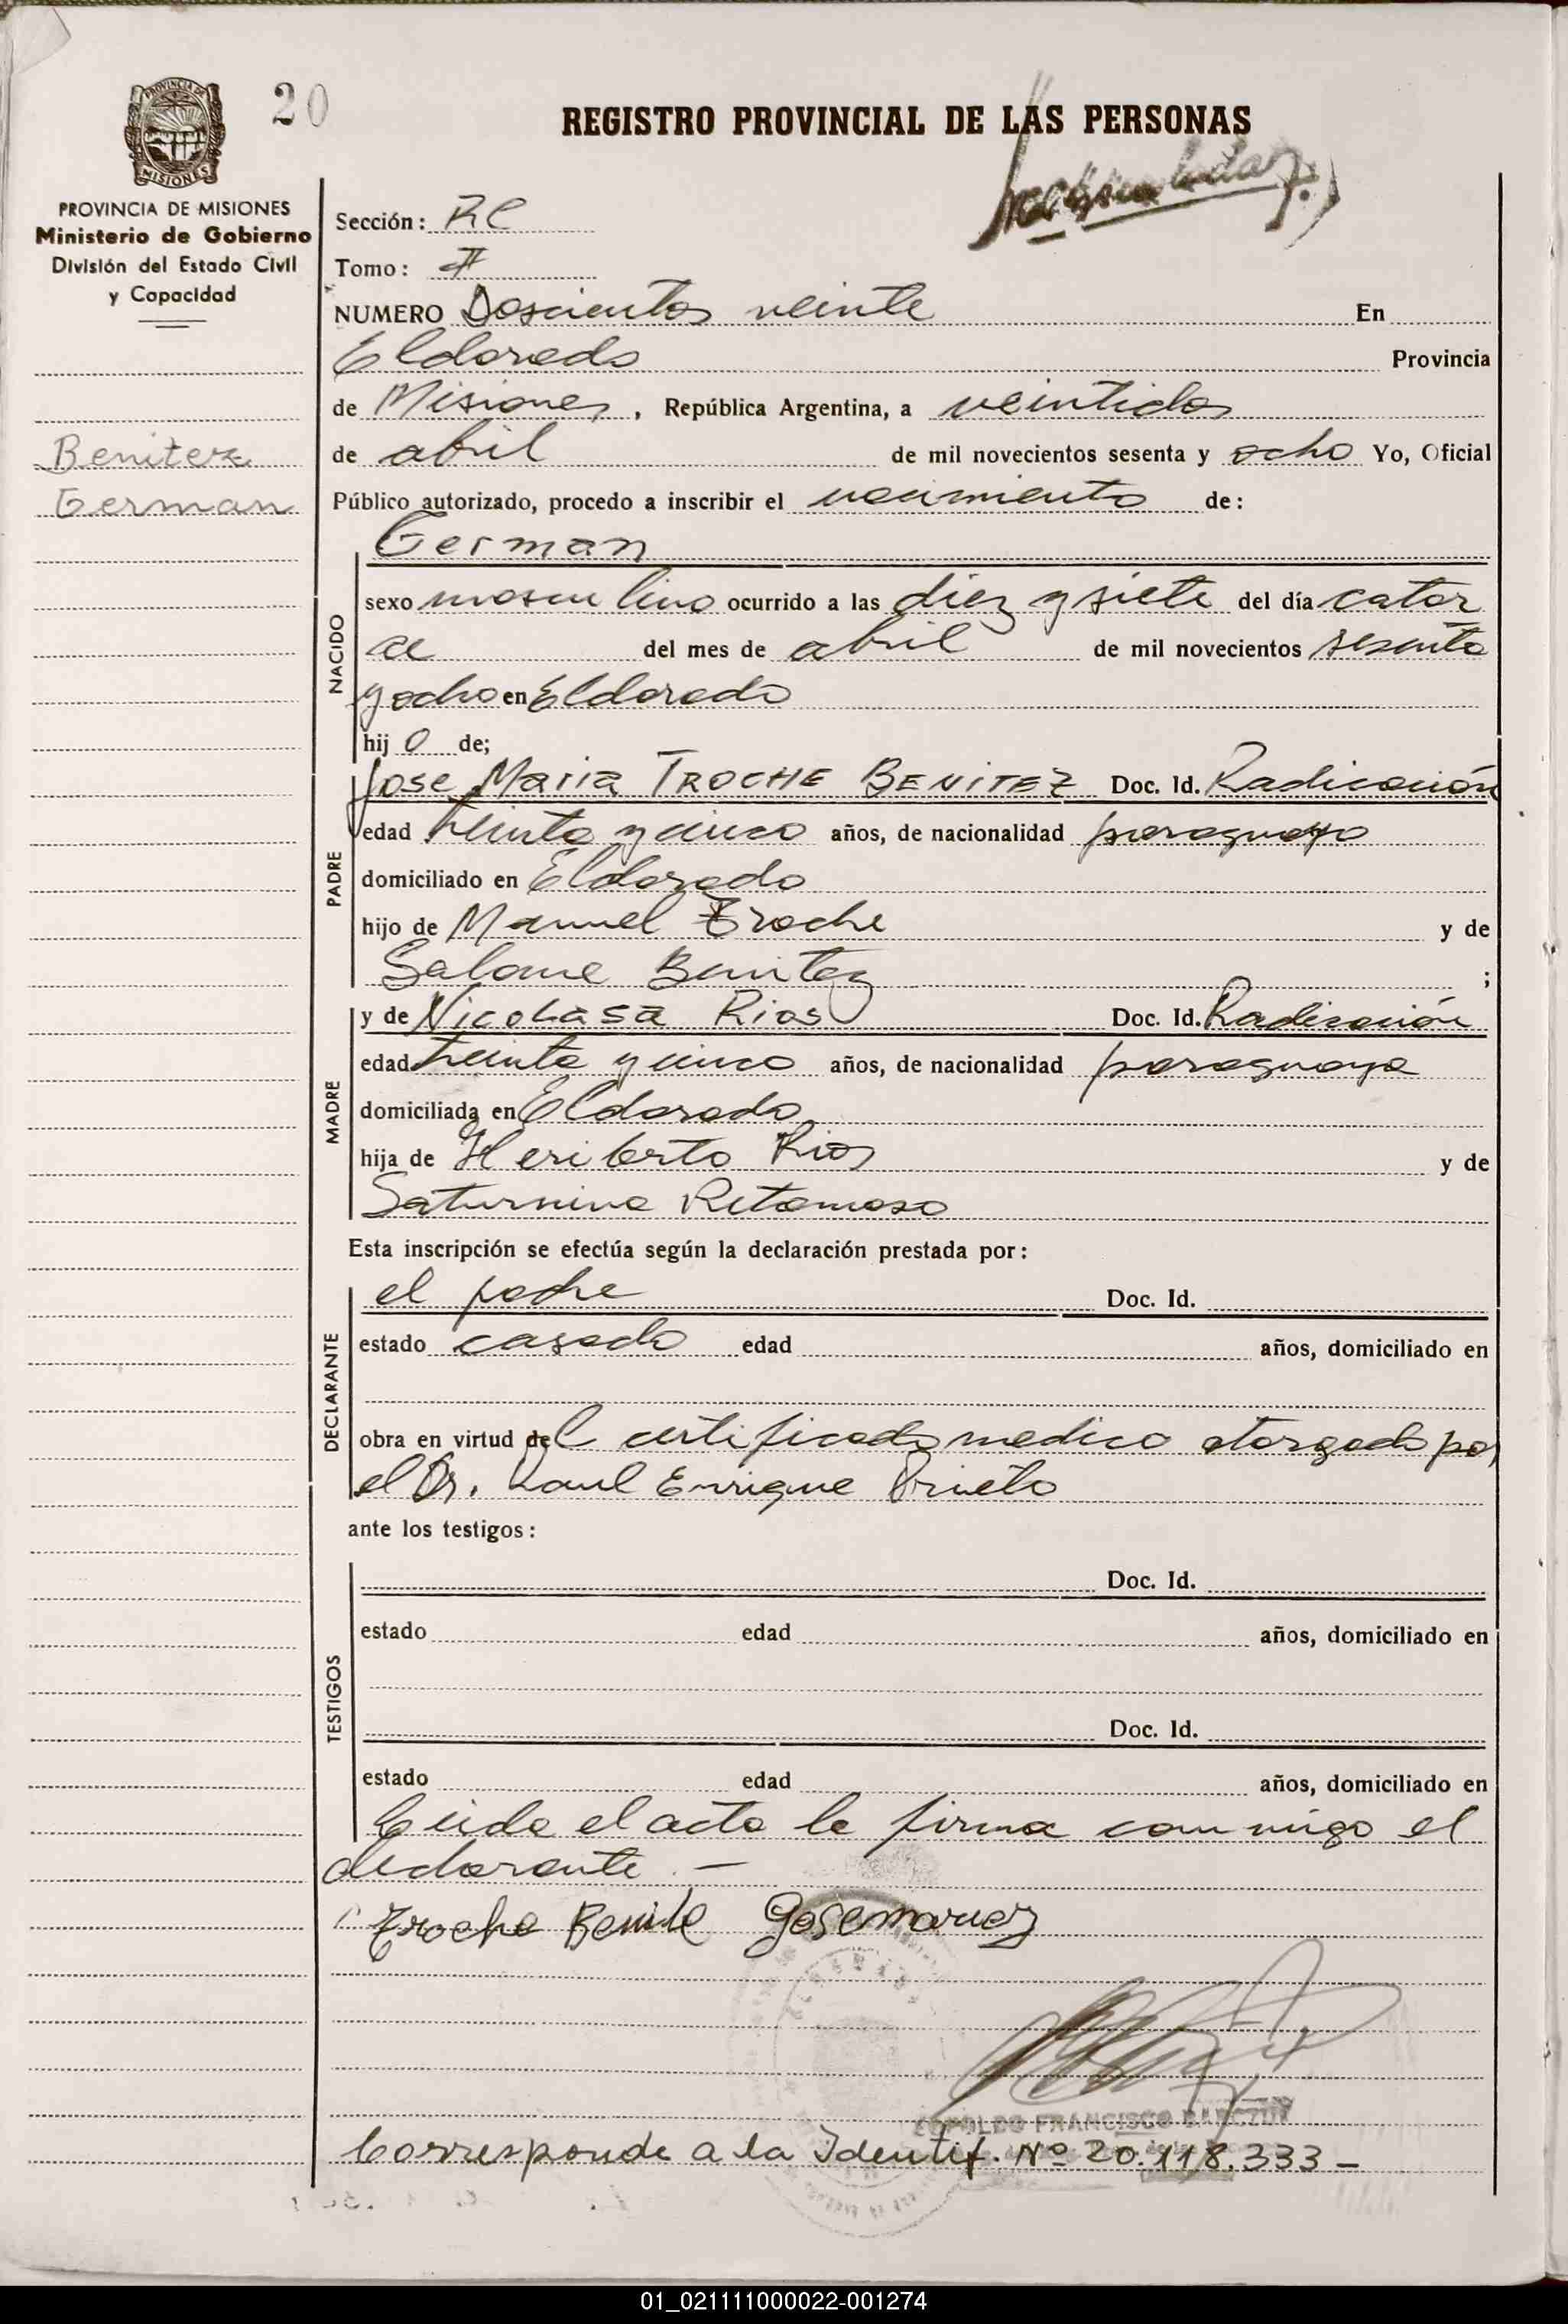 20
REGISTRO PROVINCIAL DE LAS PERSONAS
PROVINCIA DE MISIONES
MISIONES
PROVINCIA DE MISIONES
Ministerio de Gobierno
División del Estado Civil
y Capacidad
Benitez
German
Sección: RC
Tomo: II
NUMERO Doscientos veinte En
Eldorado Provincia
de Misiones, República Argentina, a veintidos
de abril de mil novecientos sesenta y ocho Yo, Oficial
Público autorizado, procedo a inscribir el nacimiento de:
German
NACIDO
sexo masculino ocurrido a las diez y siete del día cator
ce del mes de abril de mil novecientos sesenta
y ocho en Eldorado
hij o de;
PADRE
Jose Maria TROCHE BENITEZ Doc. Id. Radicación
edad treinta y cinco años, de nacionalidad paraguayo
domiciliado en Eldorado
hijo de Manuel Troche y de
Salome Benitez ;
MADRE
y de Nicolasa Rios Doc. Id. Radicación
edad treinta y cinco años, de nacionalidad paraguaya
domiciliada en Eldorado
hija de Heriberto Rios y de
Saturnina Retamoso
Esta inscripción se efectúa según la declaración prestada por:
DECLARANTE
el padre Doc. Id.
estado casado edad años, domiciliado en
obra en virtud del certificado medico otorgado por
el Dr. Raul Enrique Prieto
ante los testigos:
TESTIGOS
Doc. Id.
estado edad años, domiciliado en
Doc. Id.
estado edad años, domiciliado en
Leida el acta la firma conmigo el
declarante. —
Troche Benite
LEOPOLDO FRANCISCO
Corresponde a la Identif. Nº 20.118.333 —
01_021111000022-001274